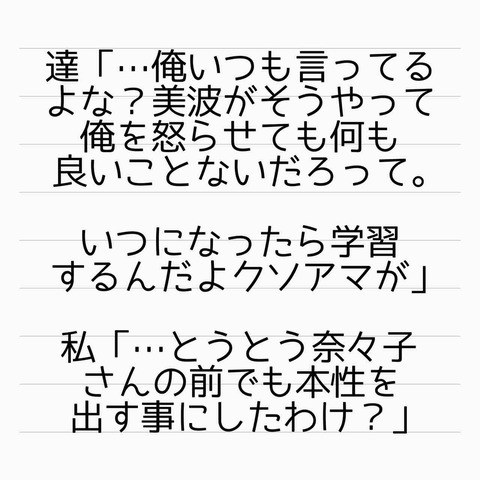 達「…俺いつも言ってる
よな？美波がそうやって
俺を怒らせても何も
良いことないだろって。
いつになったら学習
するんだよクソアマが」
私「…とうとう奈々子
さんの前でも本性を
出す事にしたわけ？」